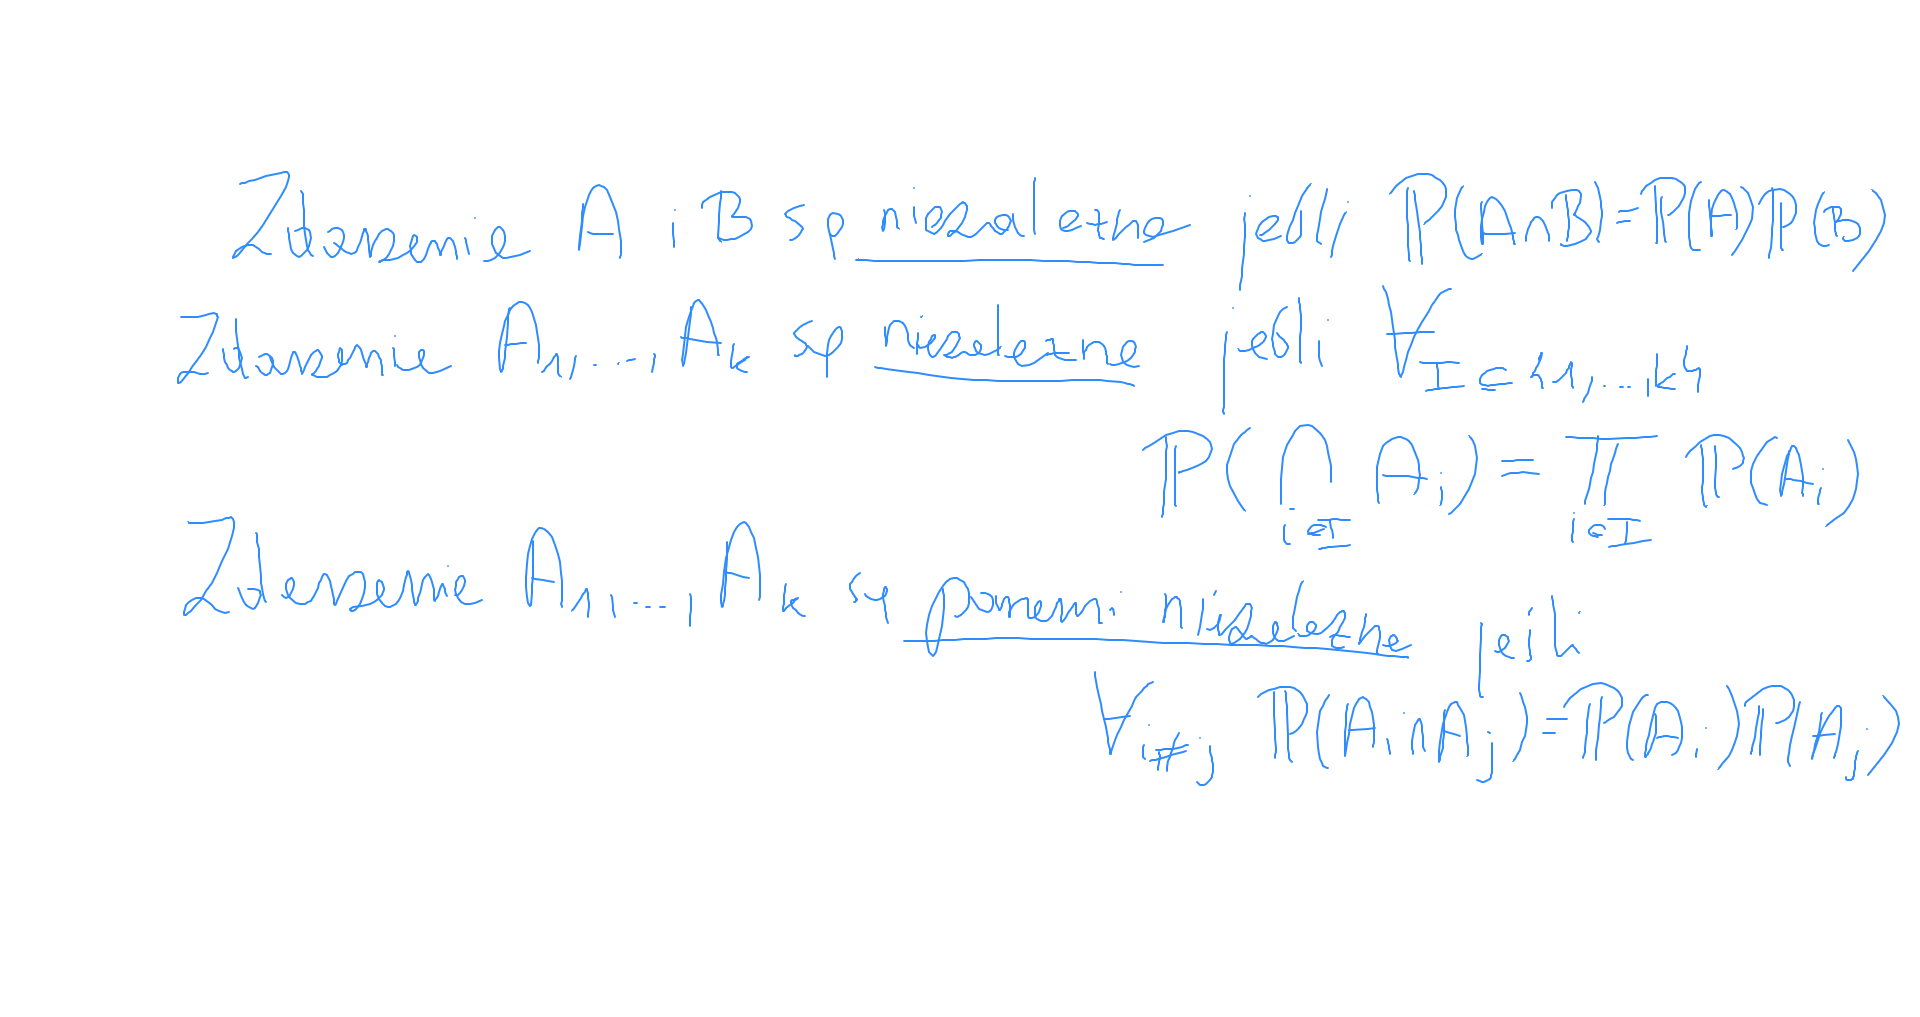 Zdarzenia A i B są niezależne jeśli ℙ(A∩B)=ℙ(A)ℙ(B)
Zdarzenia A₁,...,Aₖ są niezależne jeśli ∀_{I⊆{1,...,k}}
ℙ(⋂_{i∈I} A_i) = ∏_{i∈I} ℙ(A_i)
Zdarzenia A₁,...,Aₖ są parami niezależne jeśli
∀_{i≠j} ℙ(A_i∩A_j)=ℙ(A_i)ℙ(A_j)